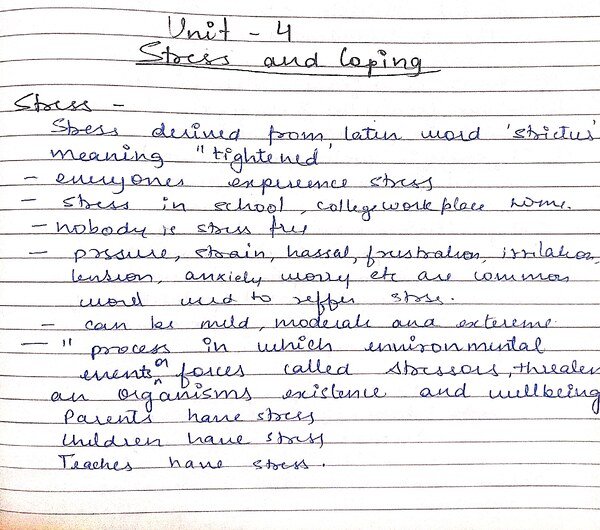 Unit - 4
Stress and Coping
Stress -
Stress desined from, latin word 'strictus'
meaning "tightened"
- everyones experience stress
- stress in school, college work place home.
- nobody is stress free
- pressure, strain, hassal, frustration, irritation,
tension, anxiety worry etc are common
word used to reffer stress.
- can be mild, moderate and extereme.
- " process in which environmental
events or forces called stressors, threaten
an organisms existence and wellbeing
Parents have stress
Children have stress
Teaches have stress.